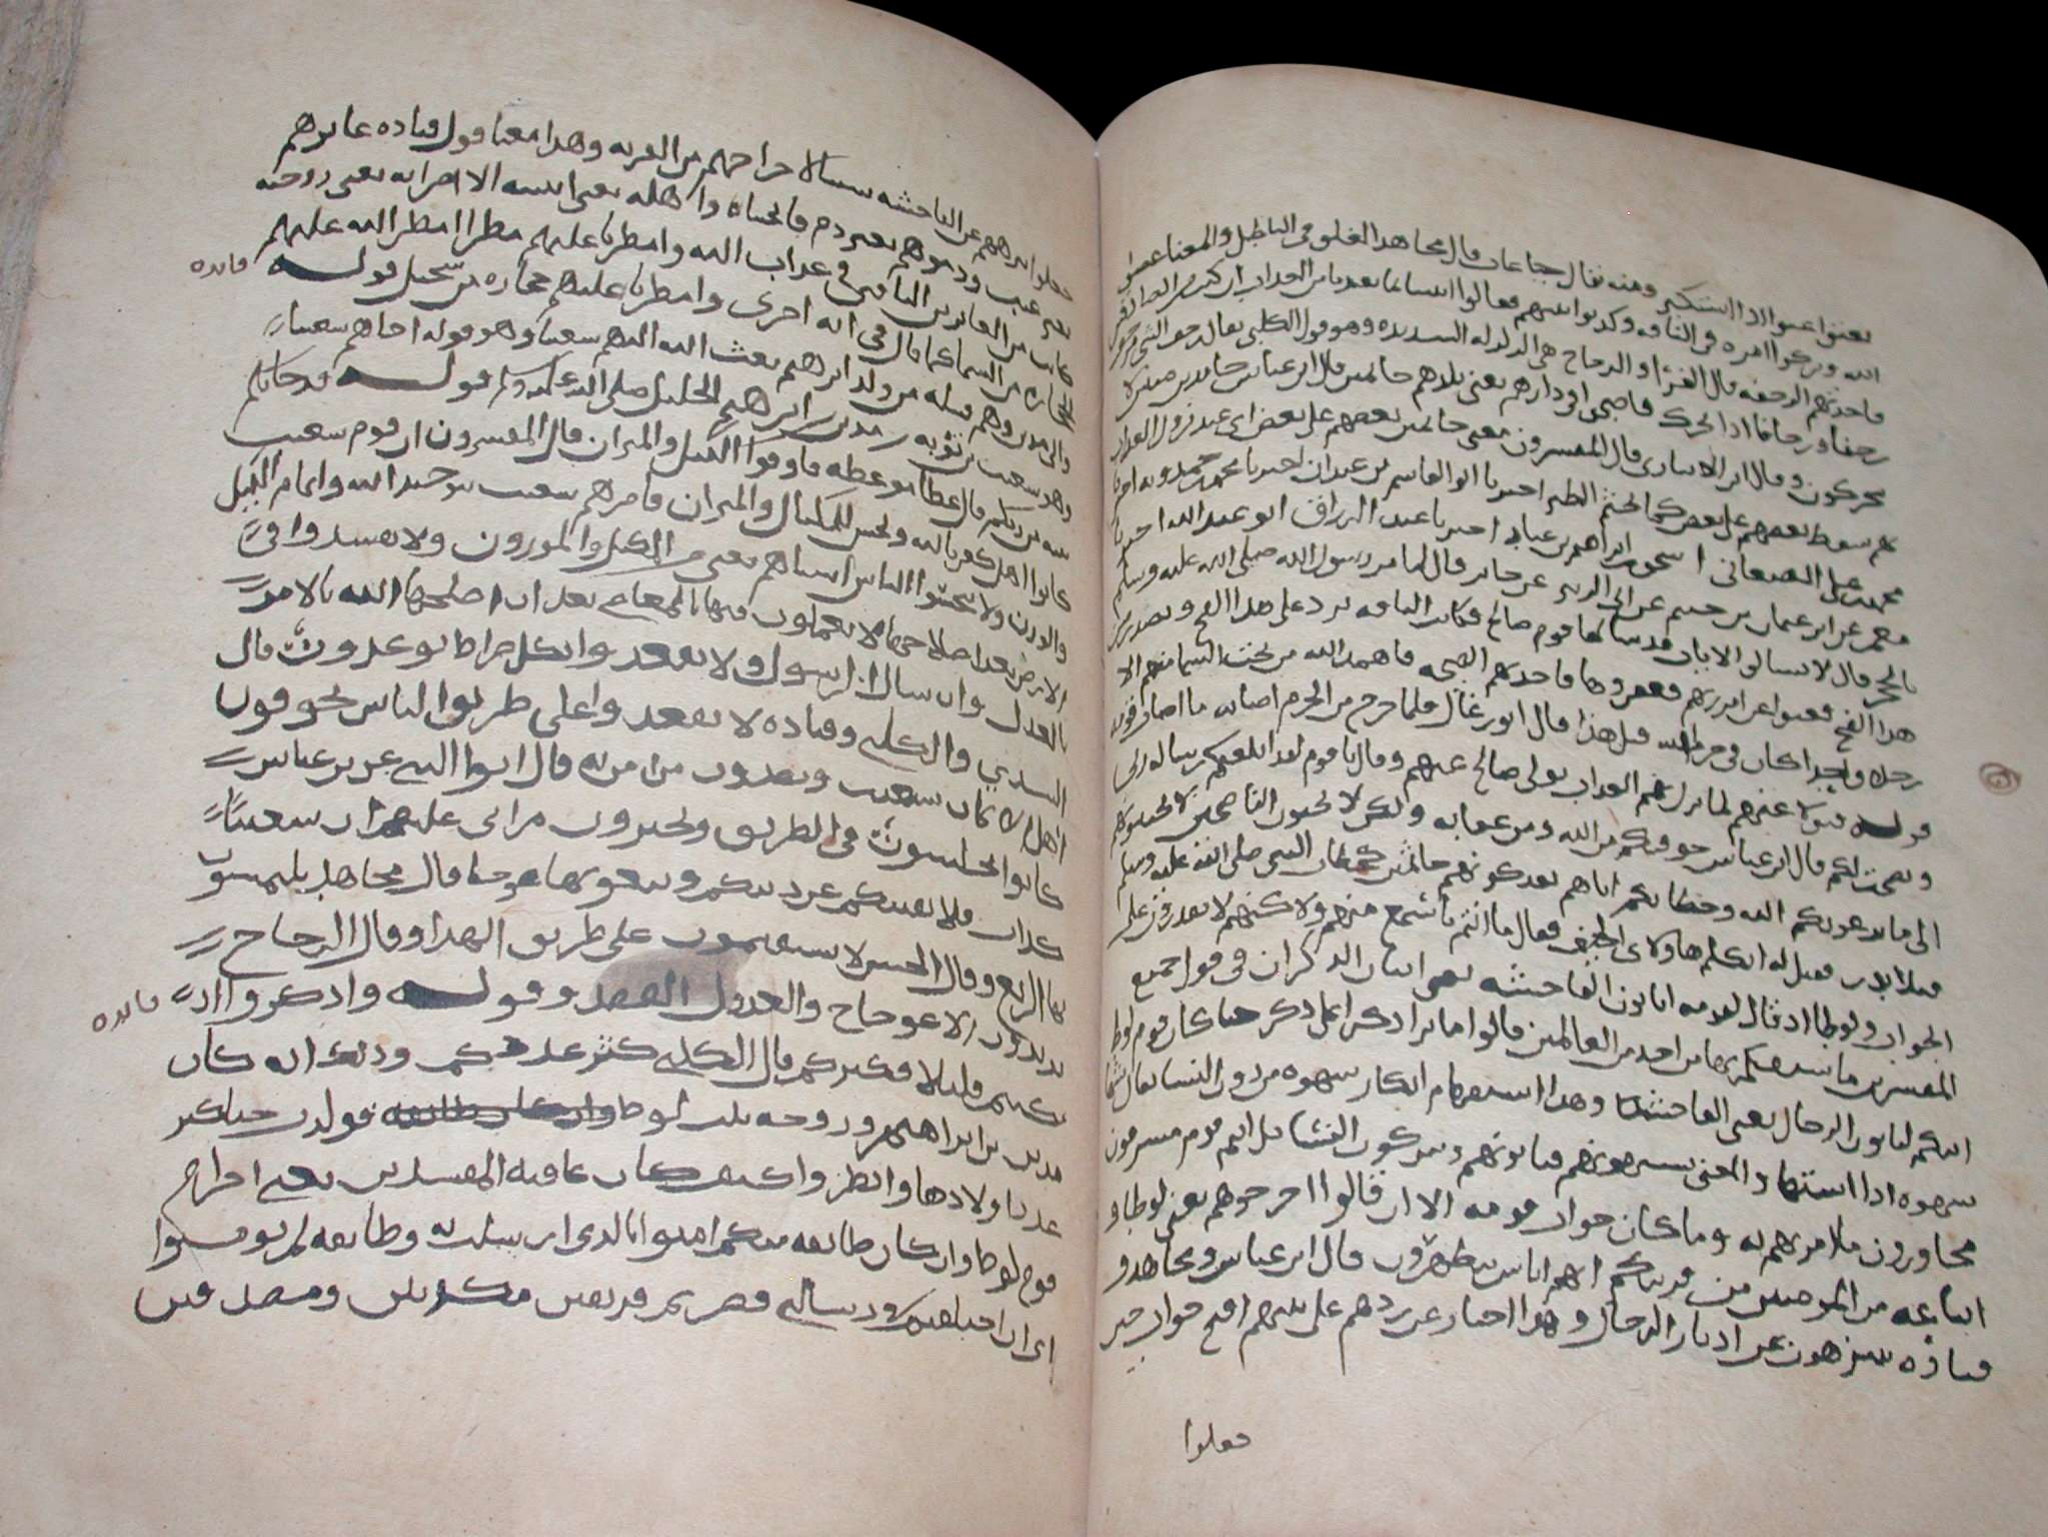 يعتوا عتوا اذا استكبر ومنه يقال جبا عات قال مجاهد الغلو في الباطل والمعنا عصوا
الله وتركوا امره في الناقه وكذبوا نبيهم فقالوا ايتنا بما تعدنا من العذاب ان كنت من
فاخذتهم الرجفه قال الفرا والزجاج هي الزلزله الشديده وهو قول الكلبي يقال رجف الشي يرجف
رجفا ورجفانا اذا تحرك فاصبحوا في دارهم يعني بلدهم جاثمين قال ابن عباس خامدين ميتين لا
يتحركون وقال ابن الانباري قال المفسرون معنى جاثمين بعضهم على بعض اي عند نزول العذاب
بهم سقط بعضهم على بعض كما تجثم الطير اخبرنا ابوا القاسم بن عبدان اخبرنا محمد بن حمدويه اخبرنا
محمد بن علي الصنعاني اسحق بن ابراهيم بن عباد اخبرنا عبد الرزاق ابو عبد الله اخبرنا
معمر عن ابن عثمان بن خثيم عن ابي الزبير عن جابر قال لما مر رسول الله صلى الله عليه وسلم
بالحجر قال لا تسالوا الايات فقد سالها قوم صالح فكانت الناقه ترد على هذا الفج وتصدر من
هذا الفج فعتوا عن امر ربهم فعقروها فاخذتهم الصيحه فاهمد الله من تحت السما منهم الا
رجلا واحدا كان في حرم الله قيل هذا قال ابو رغال فلما خرج من الحرم اصابه ما اصاب قومه
قوله فتولا عنهم لما نزل بهم العذاب تولى صالح عنهم وقال يا قوم لقد ابلغتكم رساله ربي
ونصحت لكم قال ابن عباس خوفتكم من الله ومن عقابه ولكن لا تحبون الناصحين لا تجيبونهم
الى ما يدعونكم الله وخطابكم اياهم بعد كونهم جاثمين كخطاب النبي صلى الله عليه وسلم
قتلا بدر فقيل له اتكلم هاولاي الجيف فقال ما انتم باسمع منهم ولاكنهم لا يقدرون على
الجواب ولوطا اذ قال لقومه اتاتون الفاحشه يعني اتيان الذكران في قول جميع
المفسرين ما سبقكم بها من احد من العالمين قالوا ما نزا ذكر على ذكر حتا كان قوم لوط
اينكم لتاتون الرجال يعني الفاحشه وهذا استفهام انكار شهوه من دون النسا يقال شها
شهوه اذا اشتها والمعنى تشتهونهم فتاتونهم وتتركون النسا بل انتم قوم مسرفون
مجاوزون ما امر بهم به وما كان جواب قومه الا ان قالوا اخرجوهم يعني لوطا و
اتباعه من المومنين من قريتكم انهم اناس يتطهرون قال ابن عباس ومجاهد و
قتاده يتنزهون عن ادبار الرجال وهذا اخبار عن ردهم على نبيهم اقبح جواب حين
جعلوا
جعلوا تنزههم عن الفاحشه سببا لاخراجهم من القريه وهذا معنا قول قتاده عابوهم
بغير عيب وذموهم بغير ذم فانجيناه واهله يعني ابنتيه الا امراته يعني زوجته
كانت من الغابرين الباقين في عذاب الله وامطرنا عليهم مطرا امطر الله عليهم
حجاره من السما كما قال في ايه اخرى وامطرنا عليهم حجاره من سجيل قوله
فائده
والى مدين وهم قبيله من ولد ابراهيم بعث الله اليهم شعيبا وهو قوله اخاهم شعيبا
وهو شعيب بن نويه بن مدين بن ابراهيم الخليل صلى الله عليه وسلم قوله قد جاتكم
بينه من ربكم قال عطا موعظه فاوفوا الكيل والميزان قال المفسرون ان قوم شعيب
كانوا اهل كفر بالله وبخس للمكيال والميزان فامرهم شعيب بتوحيد الله واتمام الكيل
والوزن ولا تبخسوا الناس اشياهم يعني من الكيل والموزون ولا تفسدوا في
الارض بعد اصلاحها لا تعملون فيها بالمعاصي بعد ان اصلحها الله بالامر
بالعدل وارسال الرسول ولا تقعدوا بكل صراط توعدون قال
السدي والكلبي وقتاده لا تقعدوا على طريق الناس تخوفون
اهل الايمان بشعيب وتصدون من امن به قال ابوا الليث عن ابن عباس
كانوا يجلسون في الطريق ويخبرون من اتى عليهم ان شعيبا
كذاب فلا يفتنكم عن دينكم وتبغونها عوجا قال مجاهد يلتمسون
بها الزيغ وقال الحسن لا يستقيمون على طريق الهدا وقال الزجاج
تريدون الاعوجاج والعدول القصد وقوله واذكروا اذ
فائده
كنتم قليلا فكثركم قال الكلبي كثر عددكم وذلك انه كان
مدين بن ابراهيم وزوجه بنت لوط فولدت حتا كثر
عدد اولادها وانظروا كيف كان عاقبه المفسدين يعني اخراج
قوم لوط وان كان طايفه منكم امنوا بالذي ارسلت به وطايفه لم يومنوا
اي ان اختلفتم في رسالتي فصرتم فريقين مكذبين ومصدقين